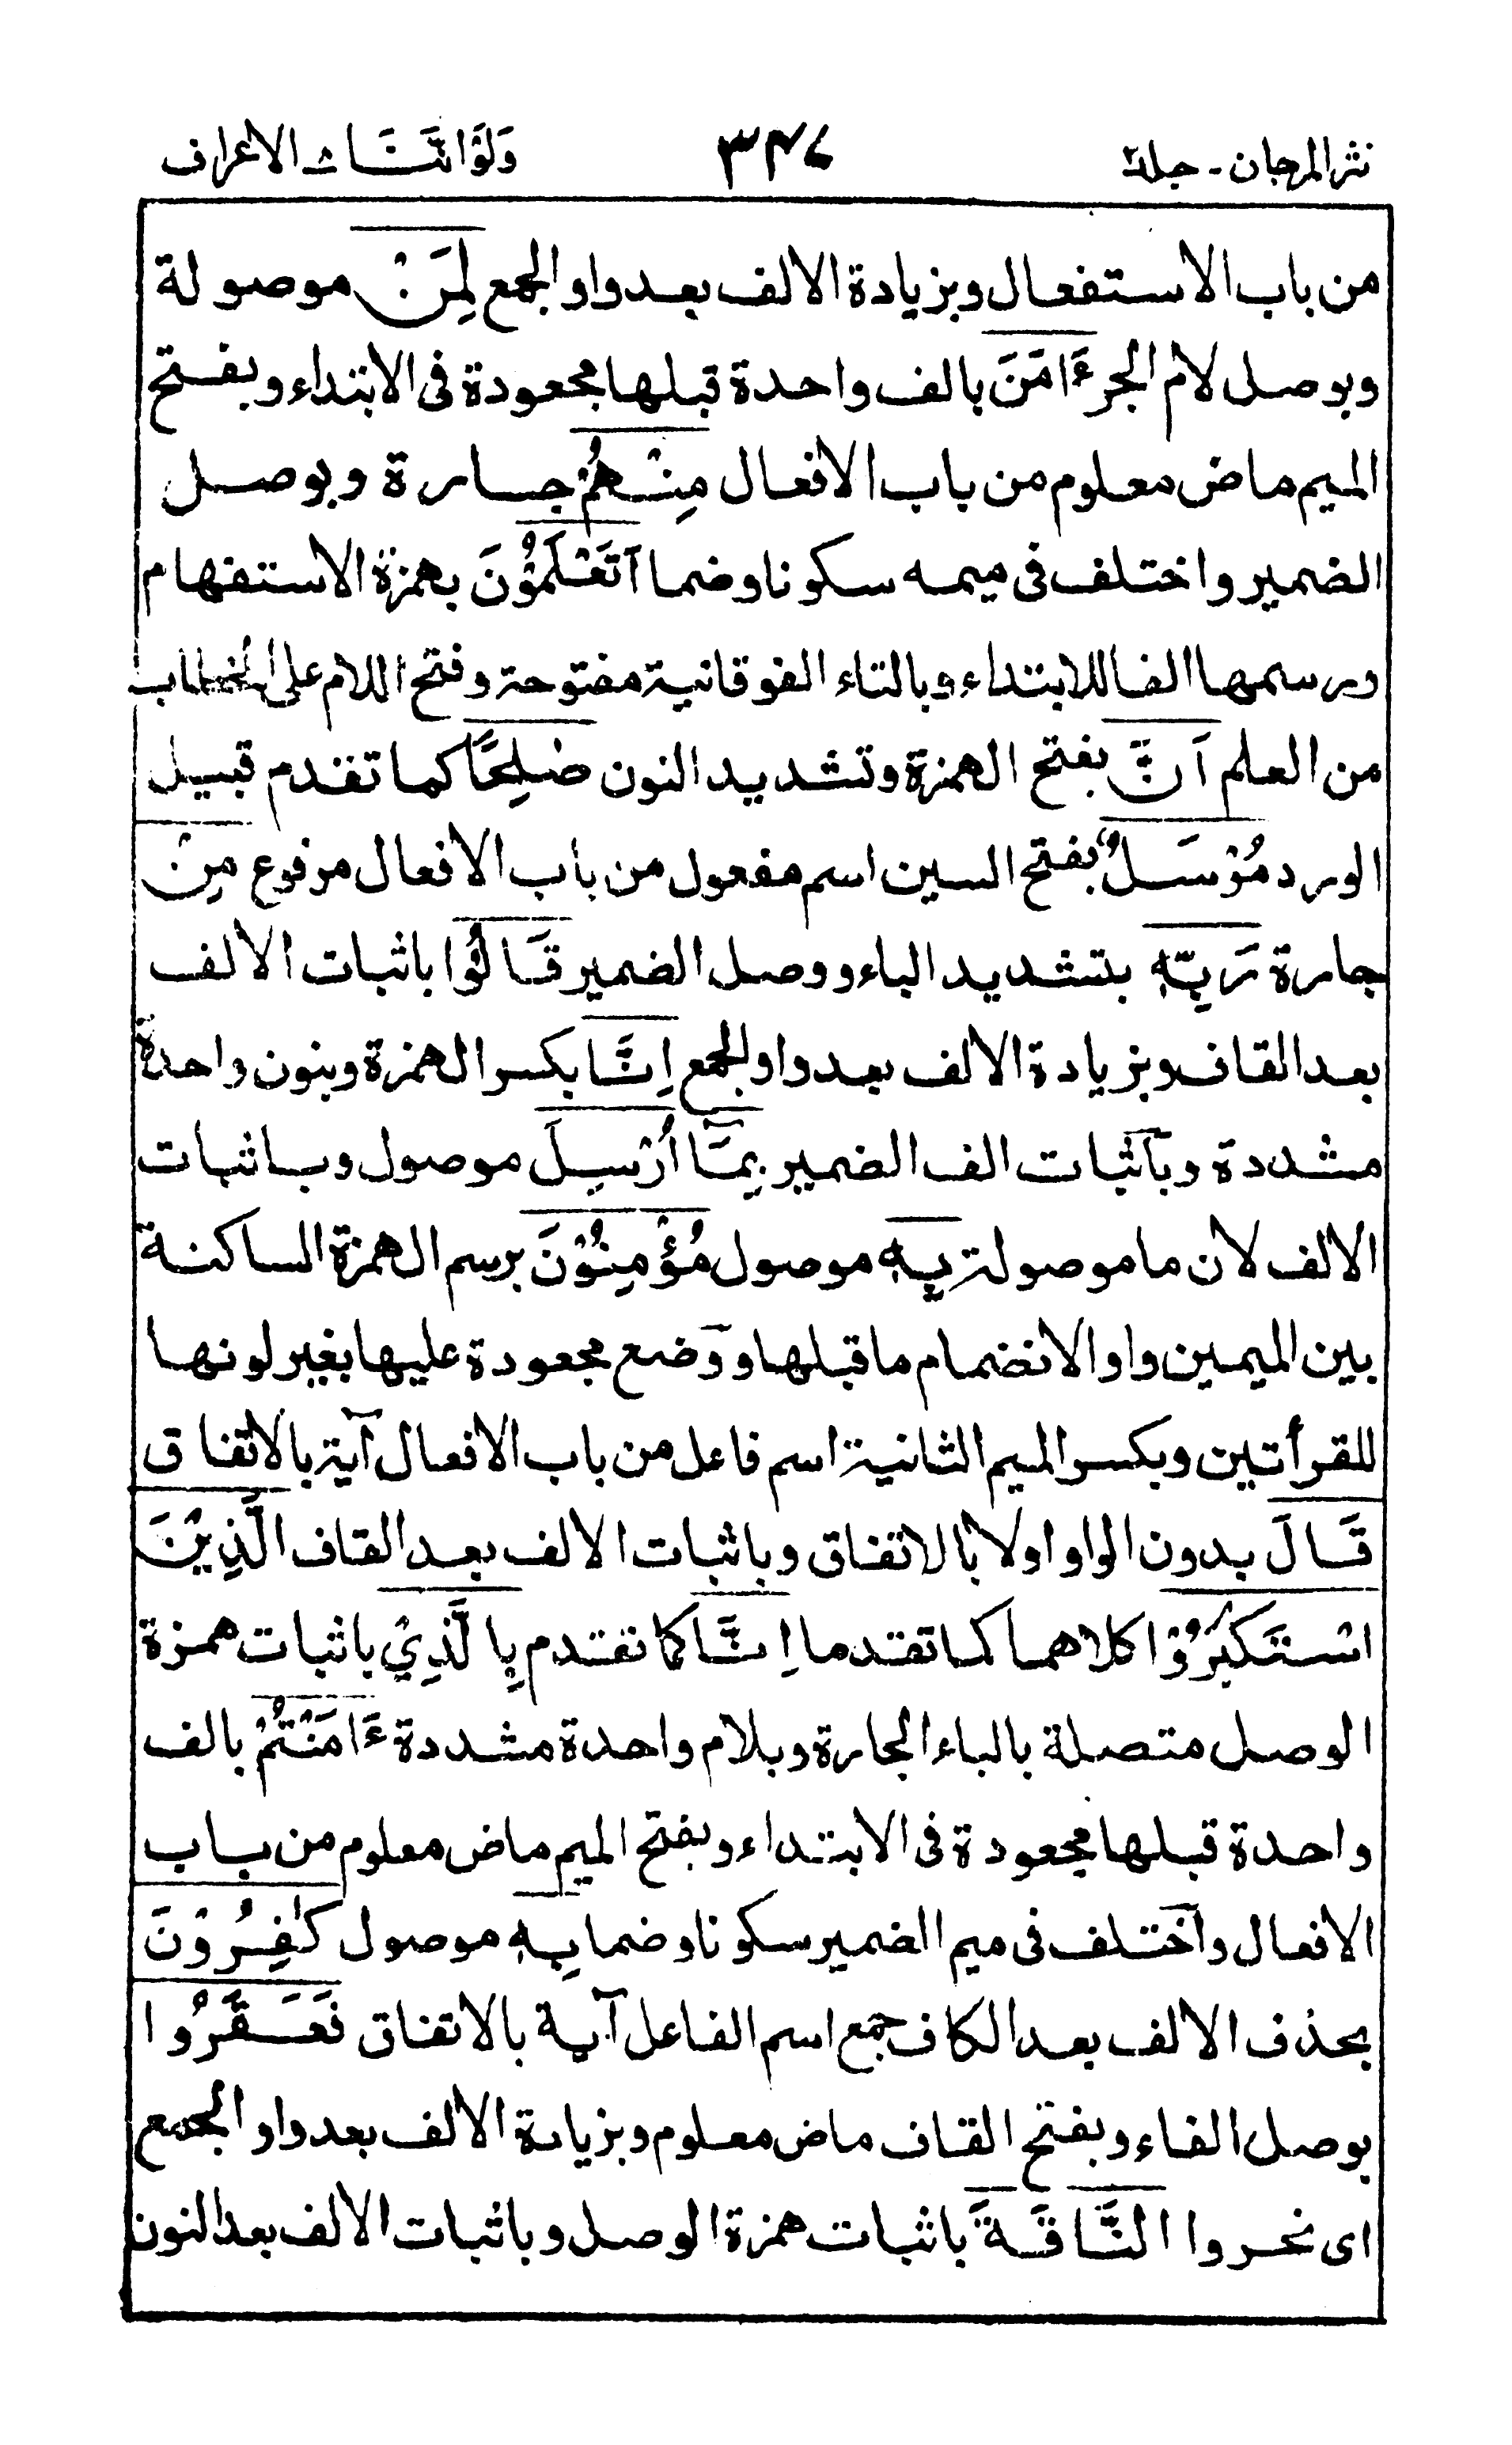 نثر المرجان - جلد٢ ٣٤٧ وَلَوْ اَنَّنَا ـ الاعراف
من باب الاستفعال وبزيادة الالف بعد واو الجمع لِمَنْ موصولة
وبوصل لام الجر ءَامَنَ بالف واحدة قبلها مجعودة فى الابتداء وبفتح
الميم ماض معلوم من باب الافعال مِنْهُمْ جارة وبوصل
الضمير واختلف فى ميمه سكونا وضما اَتَعْلَمُوْنَ بهمزة الاستفهام
ورسمها الفا للابتداء وبالتاء الفوقانية مفتوحة وفتح اللام على الخطاب
من العلم اَنَّ بفتح الهمزة وتشديد النون صٰلِحًا كما تقدم قبيل
الورد مُرْسَلٌ بفتح السين اسم مفعول من باب الافعال مرفوع مِنْ
جارة رَبِّهٖ بتشديد الباء ووصل الضمير قَالُوْا باثبات الالف
بعد القاف وبزيادة الالف بعد واو الجمع اِنَّا بكسر الهمزة وبنون واحدة
مشددة وباثبات الف الضمير بِمَآ اُرْسِلَ موصول وباثبات
الالف لان ما موصولة بِهٖ موصول مُؤْمِنُوْنَ برسم الهمزة الساكنة
بين الميمين واو الانضمام ما قبلها ووضع مجعودة عليها بغير لونها
للقرأتين وبكسر الميم الثانية اسم فاعل من باب الافعال آية بالاتفاق
قَالَ بدون الواو اولا بالاتفاق وباثبات الالف بعد القاف الَّذِيْنَ
اسْتَكْبَرُوْا كلاهما كما تقدما اِنَّا كما تقدم بِالَّذِيْ باثبات همزة
الوصل متصلة بالباء الجارة وبلام واحدة مشددة ءَامَنْتُمْ بالف
واحدة قبلها مجعودة فى الابتداء وبفتح الميم ماض معلوم من باب
الافعال واختلف فى ميم الضمير سكونا وضما بِهٖ موصول كٰفِرُوْنَ
بحذف الالف بعد الكاف جمع اسم الفاعل آية بالاتفاق فَعَقَرُوا
بوصل الفاء وبفتح القاف ماض معلوم وبزيادة الالف بعد واو الجمع
اى نحروا النَّاقَةَ باثبات همزة الوصل وباثبات الالف بعد النون